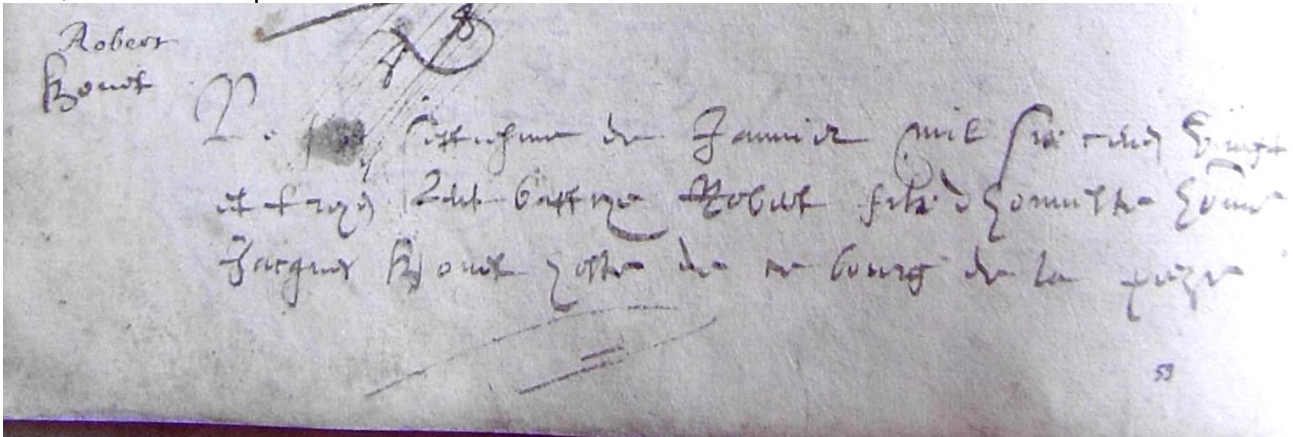 Robert
Le septiesme de Janvier mil six cens vingt
et troys a este baptize Robert filz d honneste home
Jacques hoste de ce bourg de la
53